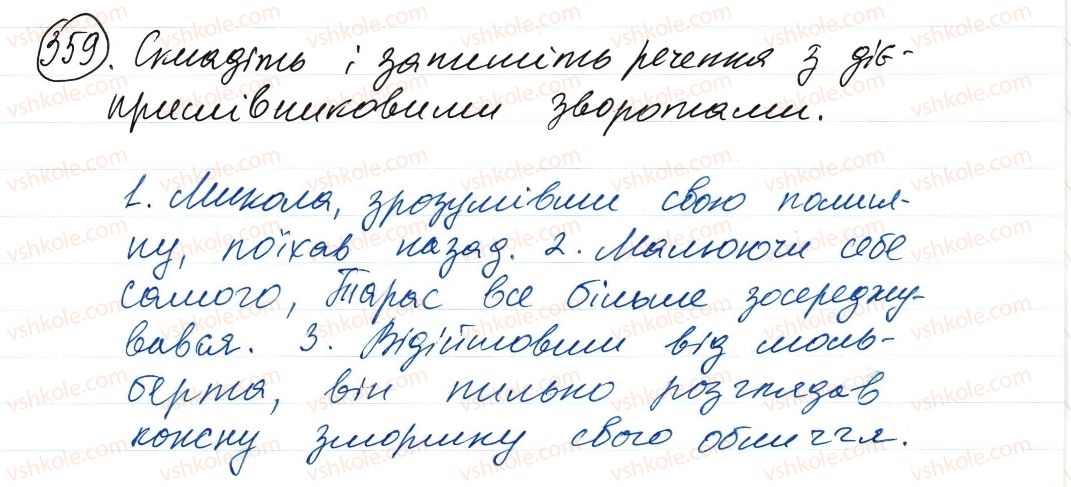 359. Складіть і запишіть речення з діє-
прислівниковими зворотами.
1. Микола, зрозумівши свою помил-
ку, поїхав назад. 2. Малюючи себе
самого, Тарас все більше зосереджу-
вався. 3. Відійшовши від моль-
берта, він пильно розглядав
кожну зморшку свого обличчя.